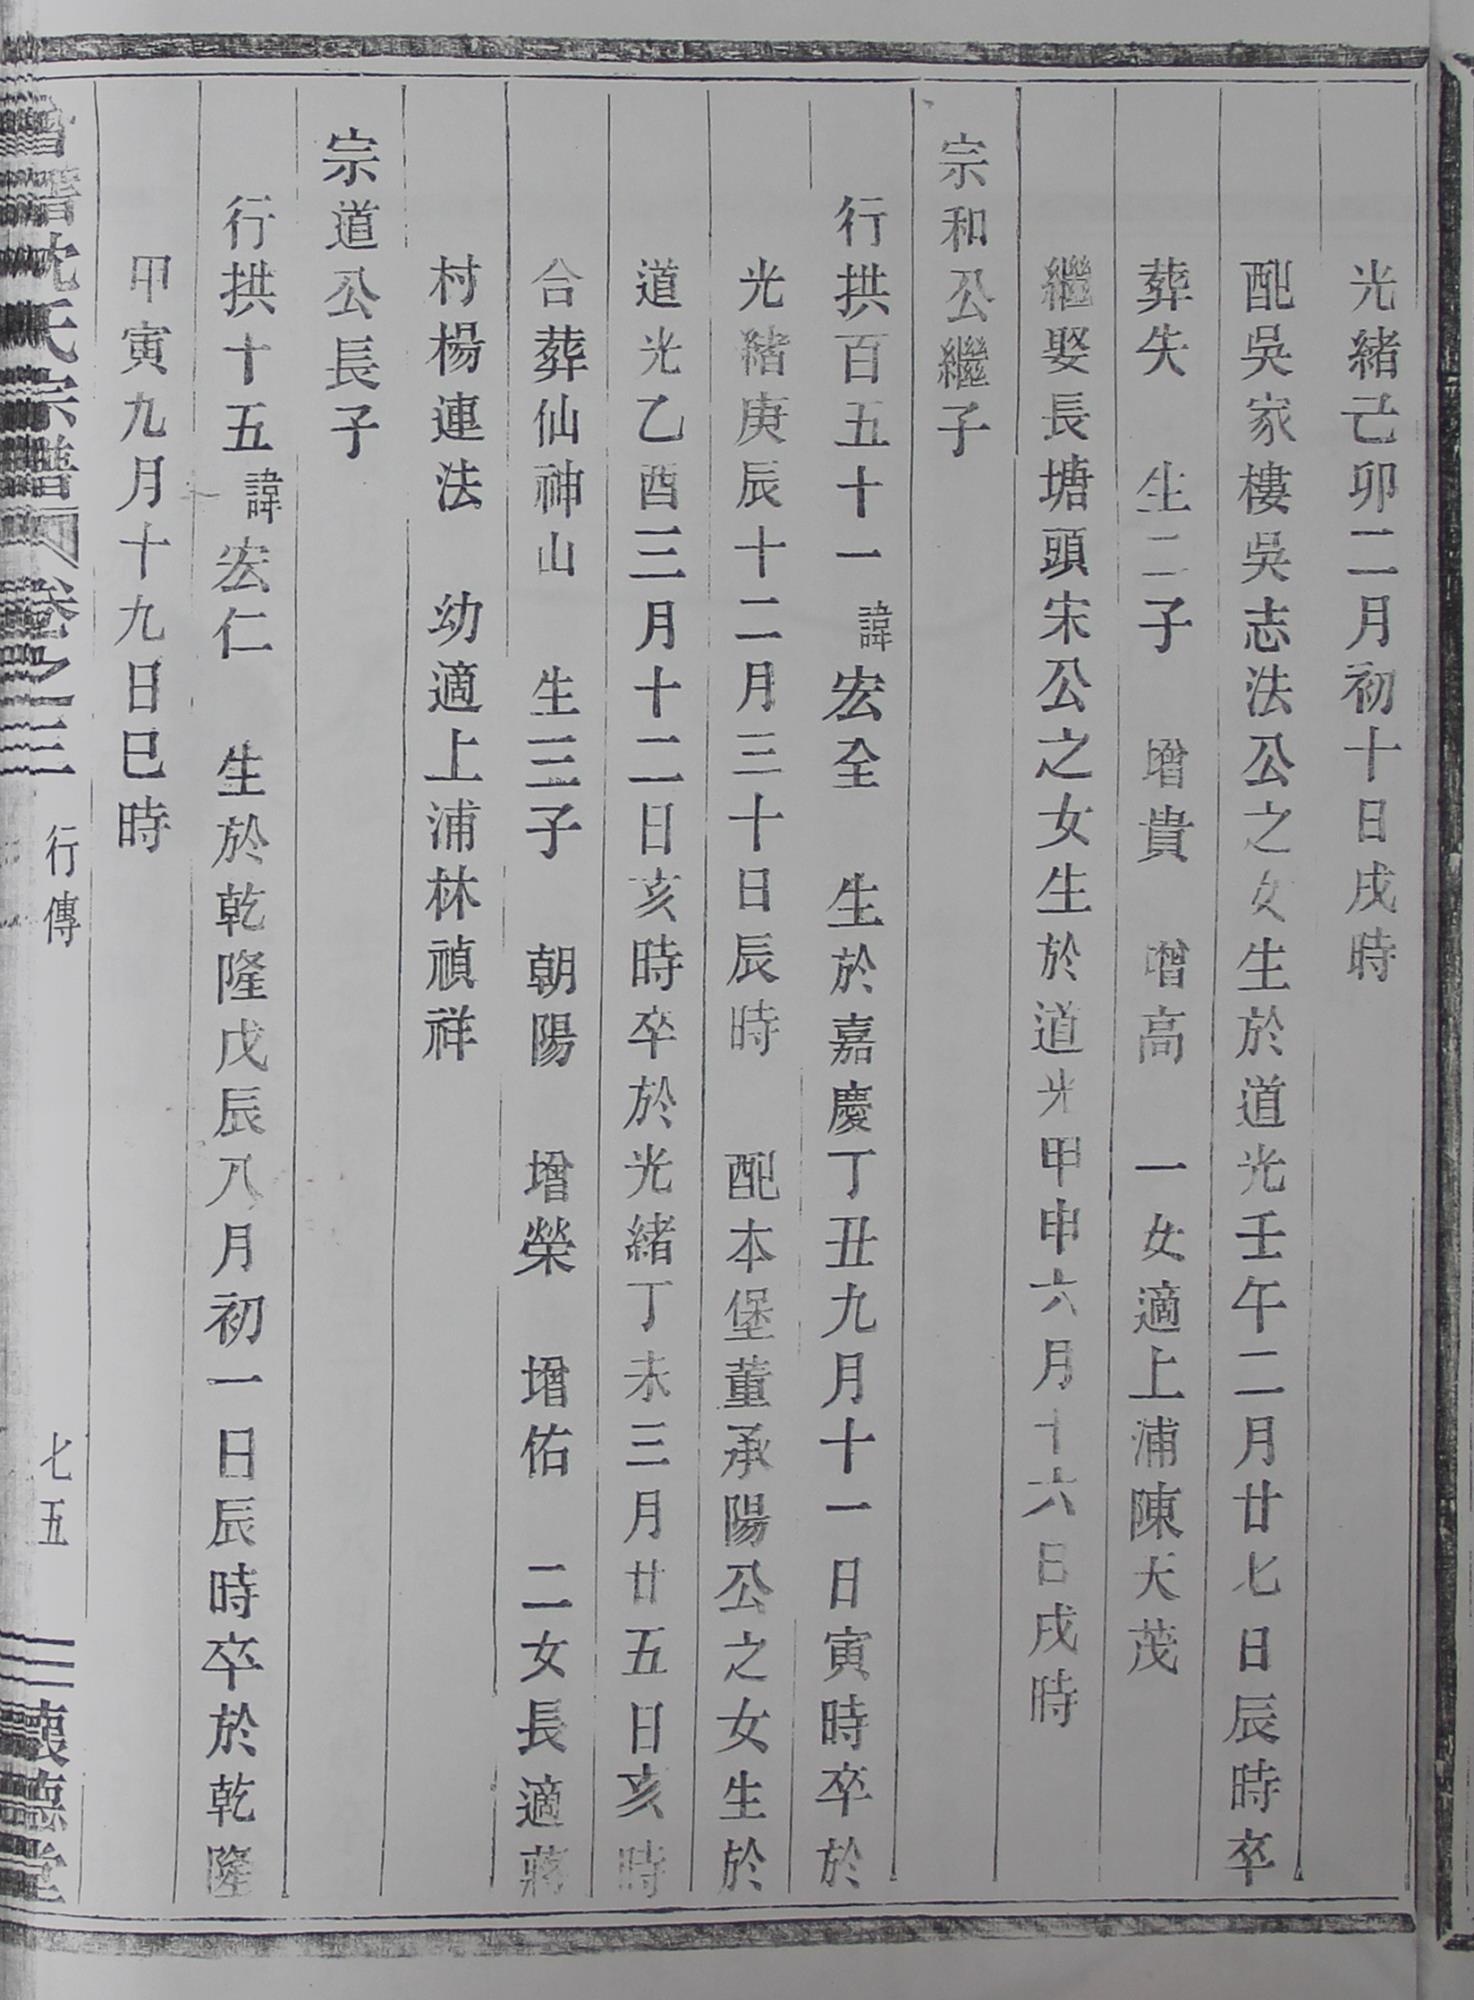 光緒己卯二月初十日戌時
配吳家樓吳志法公之女生於道光壬午二月廿七日辰時卒
葬失　生二子　增貴　增高　一女適上浦陳天茂
繼娶長塘頭宋公之女生於道光甲申六月十六日戌時
宗和公繼子
行拱百五十一諱宏全　生於嘉慶丁丑九月十一日寅時卒於
光緒庚辰十二月三十日辰時　配本堡董承陽公之女生於
道光乙酉三月十二日亥時卒於光緒丁未三月廿五日亥時
合葬仙神山　生三子　朝陽　增榮　增佑　二女長適蔣
村楊連法　幼適上浦林禎祥
宗道公長子
行拱十五諱宏仁　生於乾隆戊辰八月初一日辰時卒於乾隆
甲寅九月十九日巳時
沈氏宗譜　卷之三　行傳　七五　懷德堂